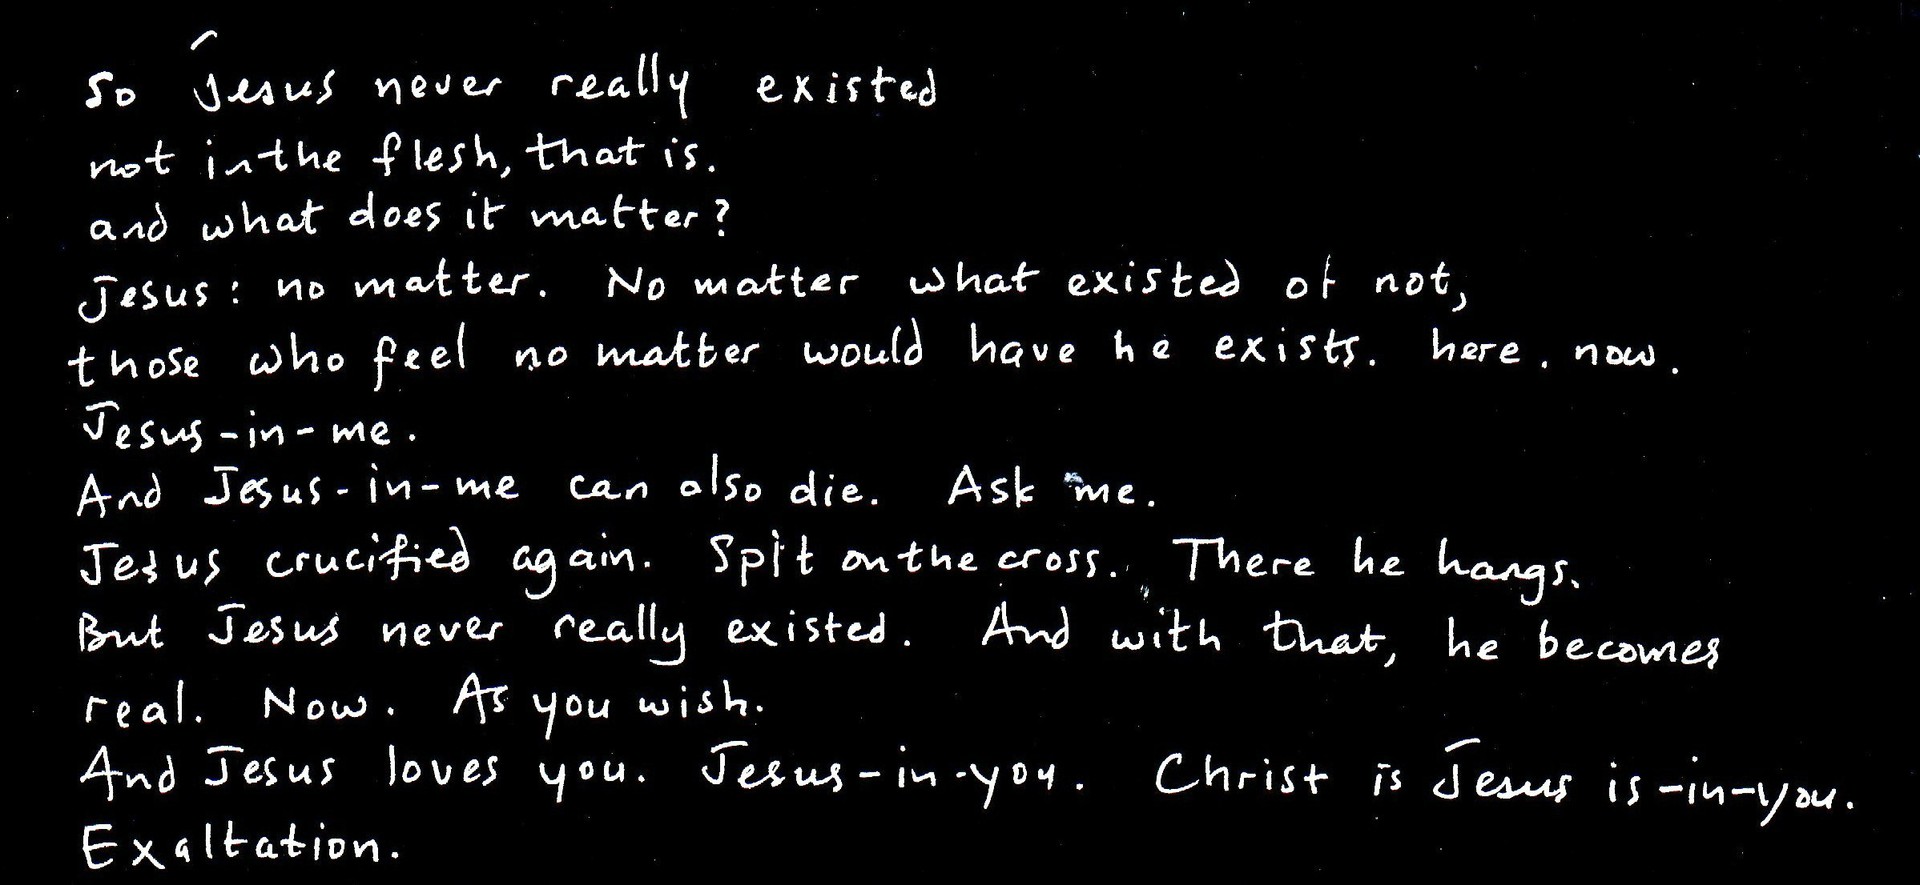 So Jesus never really existed
not in the flesh, that is.
and what does it matter?
Jesus: no matter. No matter what existed or not,
those who feel no matter would have he exists. here. now.
Jesus-in-me.
And Jesus-in-me can also die. Ask me.
Jesus crucified again. Spit on the cross. There he hangs.
But Jesus never really existed. And with that, he becomes
real. Now. As you wish.
And Jesus loves you. Jesus-in-you. Christ is Jesus is-in-you.
Exaltation.